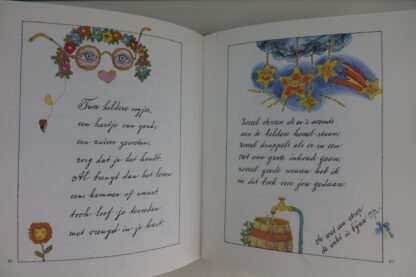 Twee heldere oogjes,
een hartje van goud,
een zuiver geweten,
zorg dat je 't houdt.
Al brengt dan het leven
een kommer of smart
toch leef je tevreden
met vreugd in je hart.
46
Zoveel sterren als er 's avonds
aan de heldere hemel staan;
zoveel druppels als er in een
vat van grote inhoud gaan;
zoveel goede wensen heb ik
in dit boek voor jou gedaan.
Oh wat een strop
de inkt is bijna op.
47